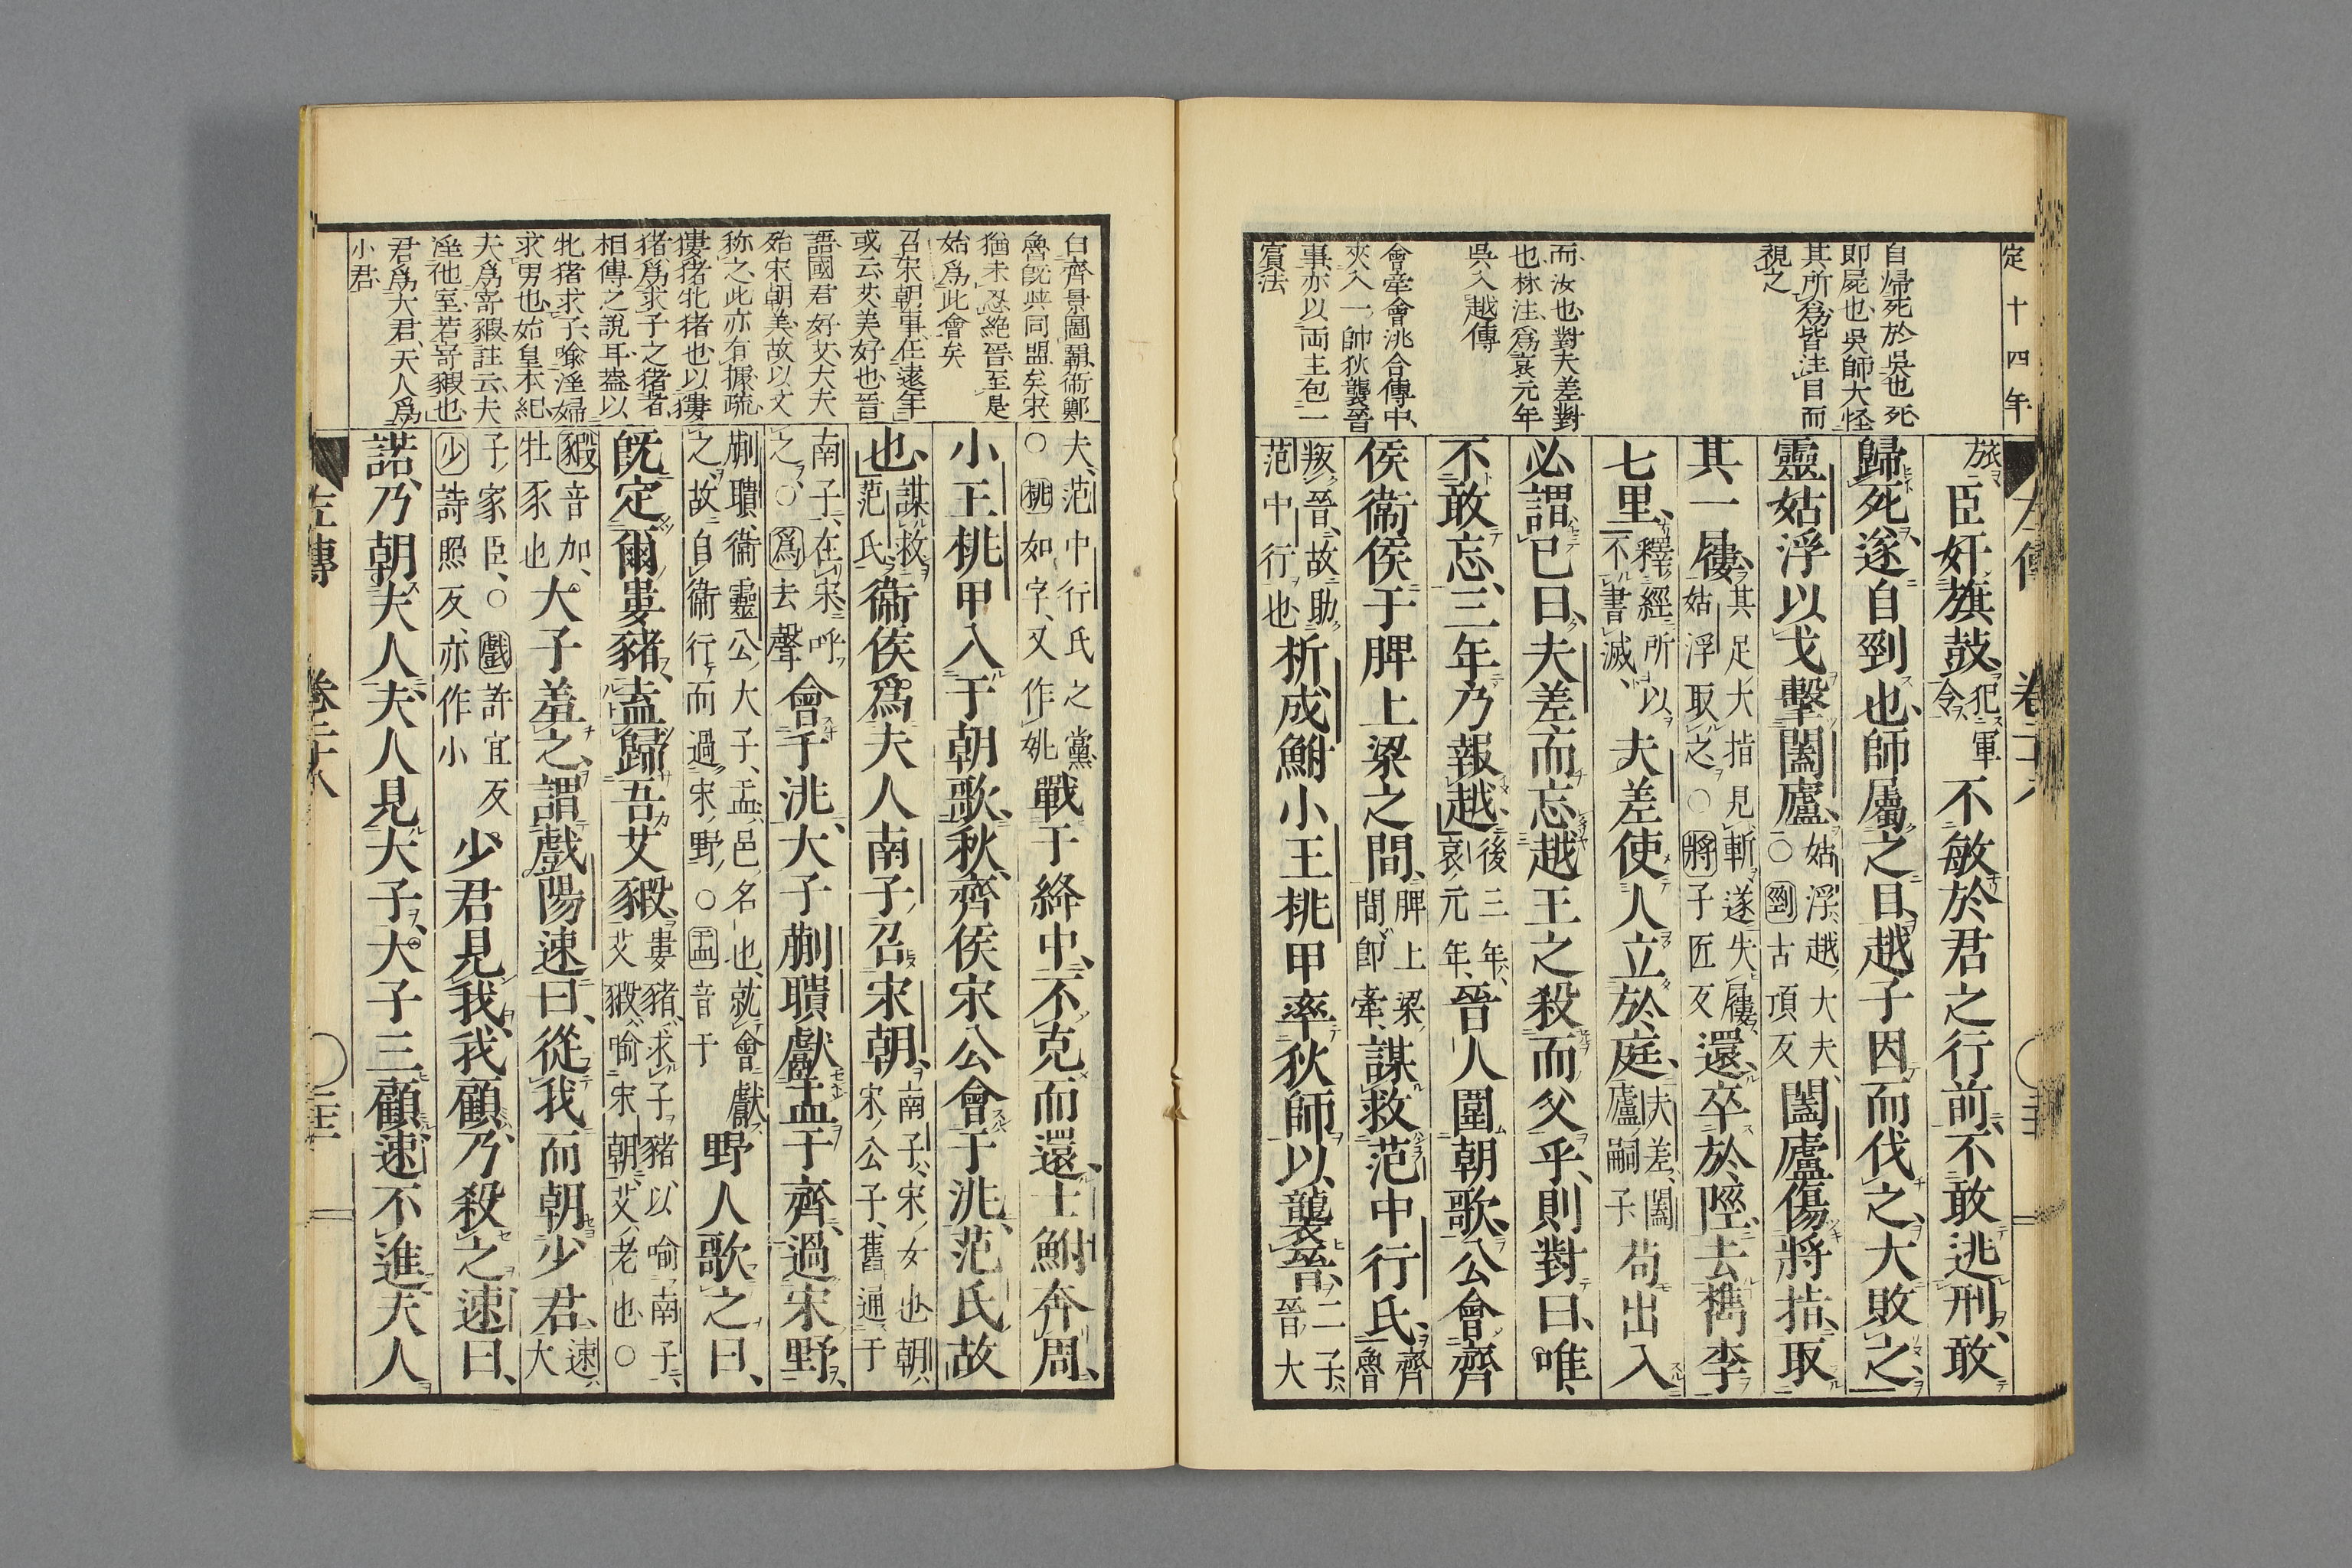 定十四年
自歸死於吳也死
即屍也吳師大怪
其所爲皆注目而
視之
而汝也對夫差對
也林注爲哀元年
吳入越傳
會牽會洮合傳中
夾入一帥狄襲晉
事亦以兩主包二
賓法
旅臣奸旗鼓犯軍令不敏於君之行前不敢逃刑敢
歸死遂自剄也師屬之目越子因而伐之大敗之
靈姑浮以戈擊闔廬姑浮越大夫○剄古頂反闔廬傷將指取
其一屨其足大指見斬遂失屨姑浮取之○將子匠反還卒於陘去檇李
七里釋經所以不書滅夫差使人立於庭夫差闔廬嗣子苟出入
必謂已曰夫差而忘越王之殺而父乎則對曰唯
不敢忘三年乃報越後三年哀元年晉人圍朝歌公會齊
侯衛侯于脾上梁之間脾上梁間即牽謀救范中行氏齊魯
叛晉故助范中行也析成鮒小王桃甲率狄師以襲晉二子晉大
白齊景圖霸衛鄭
魯旣與同盟矣宋
猶未忍絕晉至是
始爲此會矣
召宋朝事在遠年
或云艾美好也晉
語國君好艾大夫
殆宋朝美故以文
称之此亦有據疏
婁猪牝猪也以婁
猪爲求子之猪者
相傳之說耳蓋以
牝猪求子喩淫婦
求男也始皇本紀
夫爲寄豭註云夫
淫他室若寄豭也
君爲大君夫人爲
小君
夫范中行氏之黨○桃如字又作姚戰于絳中不克而還士鮒奔周
小王桃甲入于朝歌秋齊侯宋公會于洮范氏故
也謀救范氏衛侯爲夫人南子召宋朝南子宋女也朝宋公子舊通于
南子在宋呼之○爲去聲會于洮大子蒯聵獻盂于齊過宋野
蒯聵衛靈公大子盂邑名也就會獻之故自衛行而過宋野○盂音于野人歌之曰
旣定爾婁豬盍歸吾艾豭婁豬求子豬以喻南子艾豭喻宋朝艾老也○
豭音加牡豕也大子羞之謂戲陽速曰從我而朝少君速大
子家臣○戲許宜反少詩照反亦作小少君見我我顧乃殺之速曰
諾乃朝夫人夫人見大子大子三顧速不進夫人
左傳 卷二十八